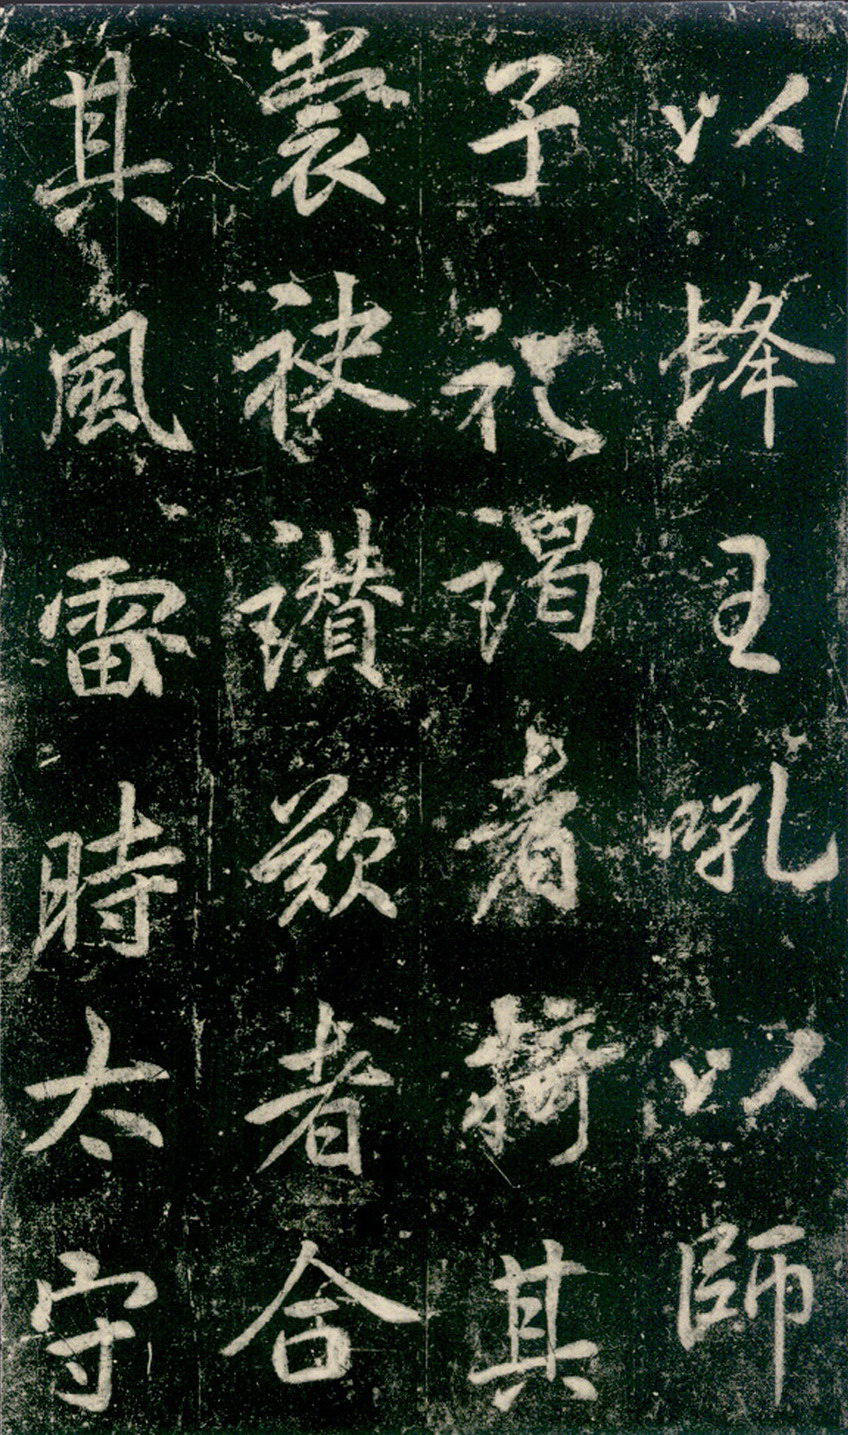 以蜂王吼以師
子礼謁者擠其
裳袂讚歎者合
其風雷時太守